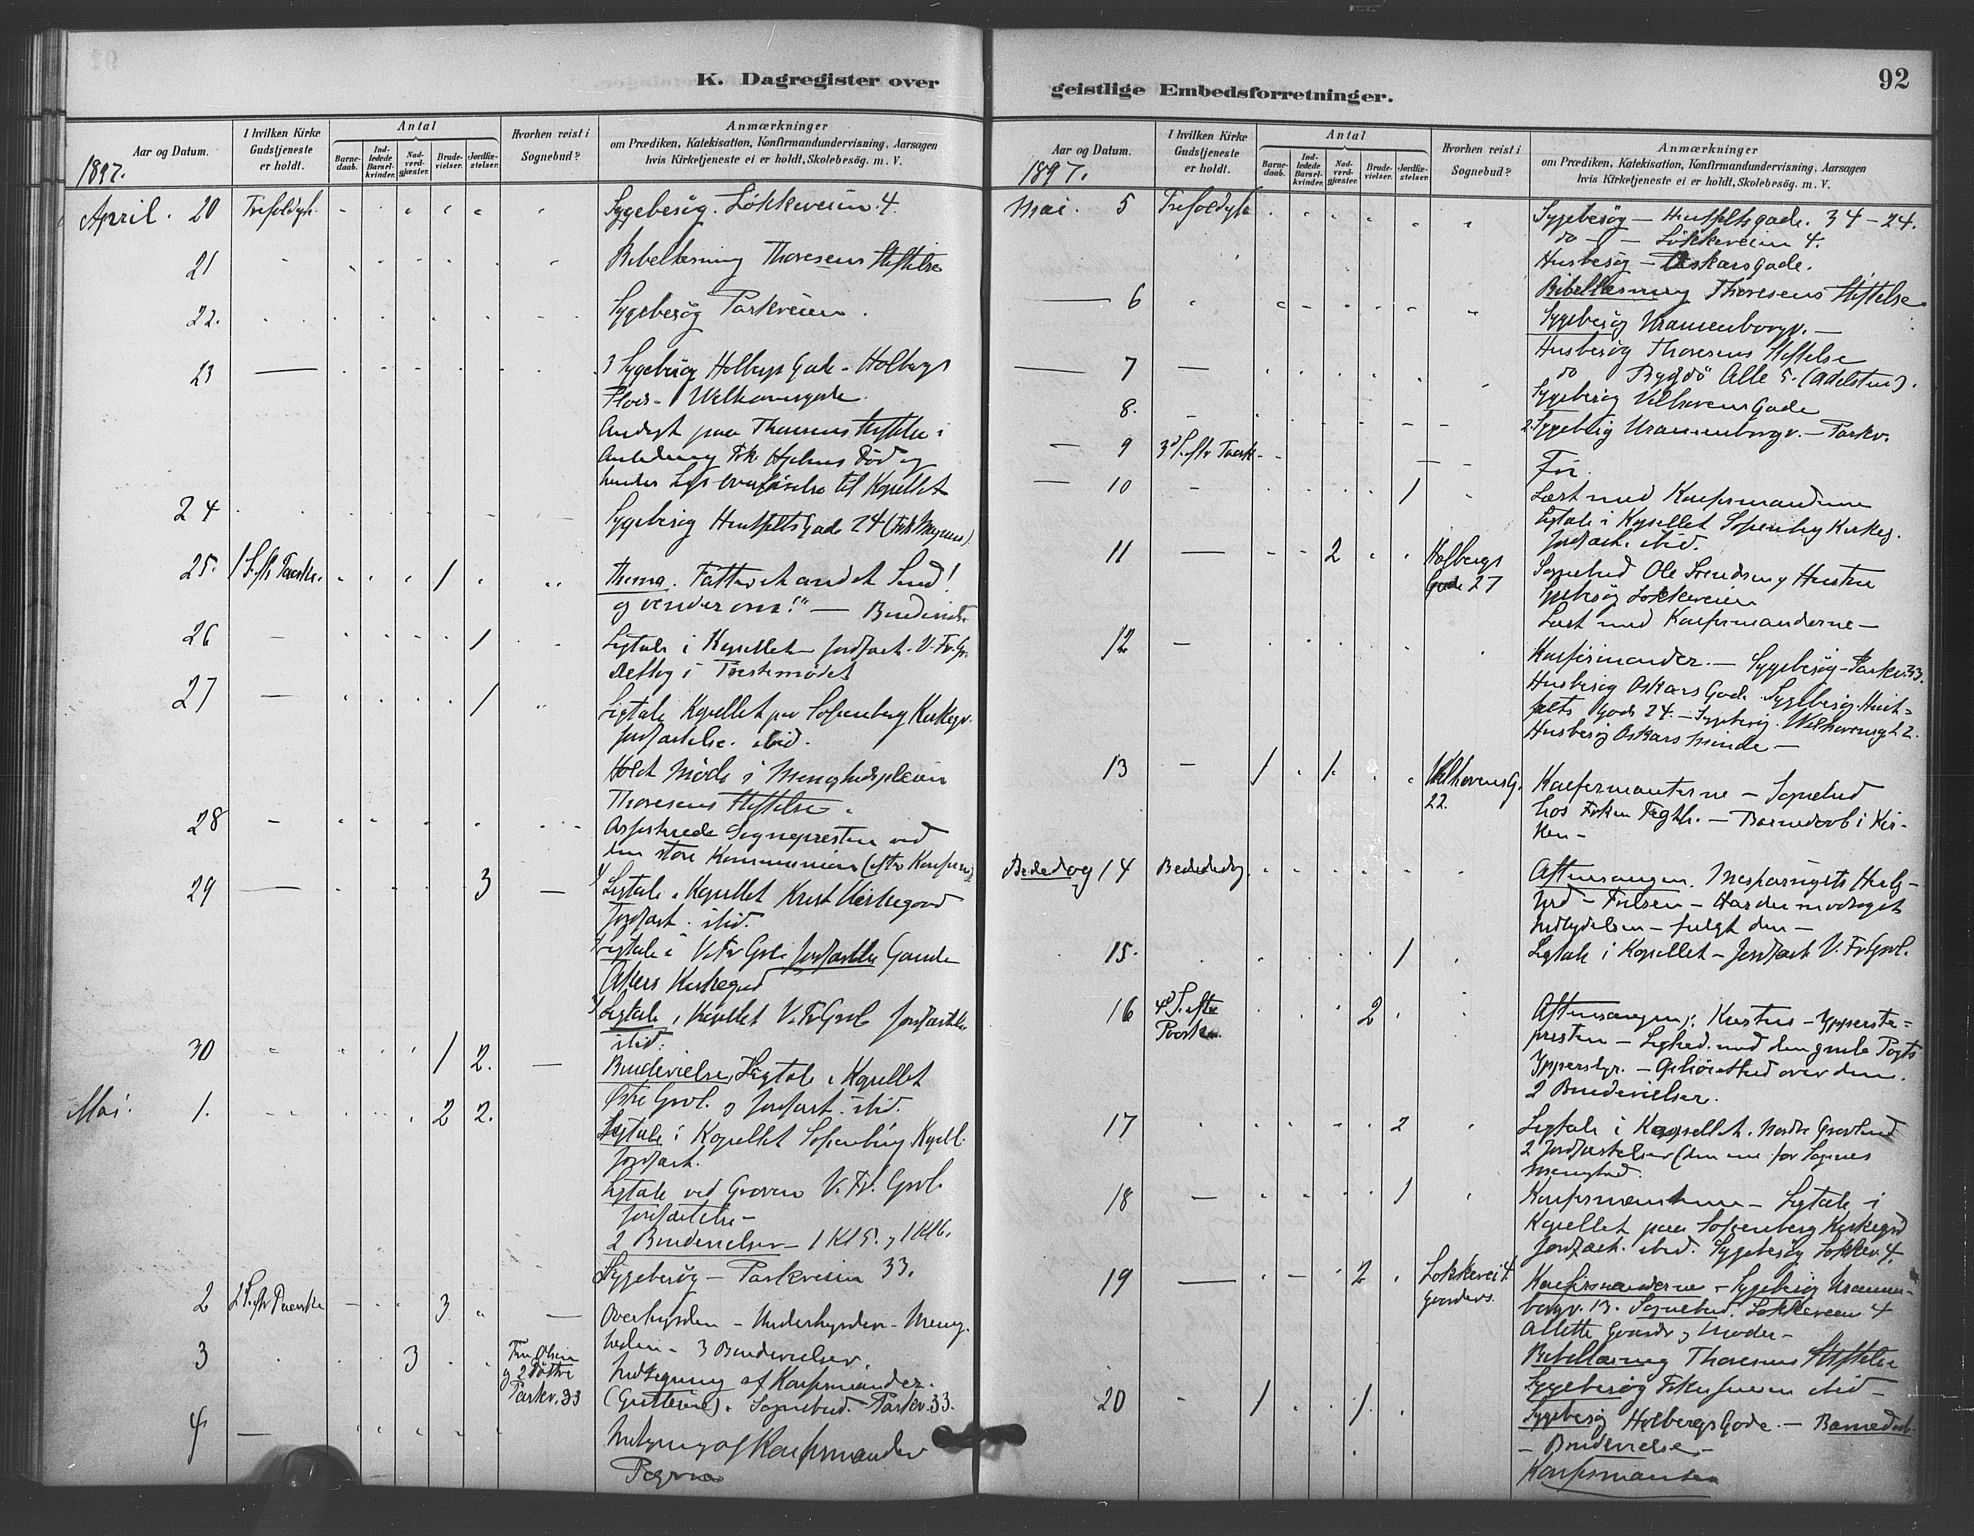 K. Dagregister over
Aar og Datum.
I hvilken Kirke Gudstjeneste er holdt.
Antal
Barne-daab.
Ind-ledede Barsel-kvinder.
Nad-verd-gjæster.
Brude-vielser.
Jordfæ-stelser.
Hvorhen reist i Sognebud?
Anmærkninger
om Prædiken, Katekisation, Konfirmandundervisning, Aarsagen
hvis Kirketjeneste ei er holdt, Skolebesøg. m. V.
1897.
April. 20 Trefoldigh. Sygebesøg. Løkkeveien 4.
21 Bibellæsning Thoresens Stiftelse
22. Sygebesøg Parkveien.
23 3 Sygebesøg Holbergs Gade - Holbergs
Plads - Welhavensgade.
Andagt paa Thoresens Stiftelse i
Anledning Frk
til Kapellet
24 Sygebesøg Huitfeldts Gade 24
25. 1 S. eft. Paaske. 1 Thema. Fatter et andet Sind!
og vender om!" —
26 1 Ligtale i Kapellet Jordfæst. V. Fr. Gr.
Deltog i Prestemødet
27 1 Ligtale Kapellet paa Sofienberg Kirkeg.
Jordfæstelse. ibid.
Holdt Møde i Menighedspleien
Thoresens Stiftelse.
28 Assisterede Sognepresten ved
den store Kommunion
29 3 1) Ligtale i Kapellet Krist Kirkegaard
Jordfæst. ibid.
Ligtale i V. Fr. Grl. Jordfæstelse Gamle
Akers Kirkegrd
Ligtale i Kapellet V. Fr Gravl. Jordfæstelse
ibid.
30 1 2. Brudevielse, Ligtale i Kapellet
Gravl. og Jordfæst. ibid.
Mai. 1. 2 2. Ligtale i Kapellet Sofienberg Kapell.
Jordfæst.
Ligtale ved Graven V. Fr. Gravl.
Jordfæstelse -
2 Brudevielser - 1 Kl 5. og 1 Kl 6.
Sygebesøg - Parkveien 33.
2 2 S. eftr Paaske 3. Overhyrden - Underhyrden - Menig-
heden - 3 Brudevielser.
3 3 Fru Olsen
og 2 Døttre
Parkv. 33
Indtegning af Konfirmander.
(Gutterne). Sognebud. Parkv. 33.
4 Indtegning af Konfirmander
Pigerne
geistlige Embedsforretninger.
92
Aar og Datum.
I hvilken Kirke Gudstjeneste er holdt.
Antal
Barne-daab.
Ind-ledede Barsel-kvinder.
Nad-verd-gjæster.
Brude-vielser.
Jordfæ-stelser.
Hvorhen reist i Sognebud?
Anmærkninger
om Prædiken, Katekisation, Konfirmandundervisning, Aarsagen
hvis Kirketjeneste ei er holdt, Skolebesøg. m. V.
1897.
Mai. 5 Trefoldigh Sygebesøg - Huitfeldtsgade. 34 - 24.
do - Løkkeveien 4.
Husbesøg - Oskarsgade.
6 Bibellæsning Thoresens Stiftelse
Sygebesøg Uranienborgv. -
7 Husbesøg Thoresens Stiftelse
do Bygdø Alle 5. (Adelsten).
8. Sygebesøg Velhavens Gade
2 Sygebesøg Uranienborgv. - Parkv.
9 3d S. eftr Paask Fri.
10 1 Læst med Konfirmanderne
Ligtale i Kapellet Sofienberg Kirkeg.
Jordfæst. ibid.
11 2 Holbergs
Gade 27
Sognebud Ole Svendsen og Hustru
Sygebesøg Løkkeveien
Læst med Konfirmanderne -
12 Konfirmander. - Sygebesøg - Parkv. 33.
Husbesøg Oskars Gade. Sygebesøg. Huit=
felts Gade 24. - Sygebesøg. Welhavensg 22.
Husbesøg Oskars Minde -
13 1 1 Welhavens G.
22.
Konfirmanterne - Sognebud
hos - Barnedaab i Kir-
ken -
Bededag 14 Bededag Aftensangen.
Indbydelsen - fulgt den -
15. 1 Ligtale i Kapellet - Jordfæst V. Fr Gravl.
16 4d S. eftr
Paaske.
2 Aftensangen: Kristus - Ypperste=
presten - Lighed med den gamle Pagts
Yppersteprs. - Ophøiethed over dem.
2 Brudevielser.
17 2 Ligtale i Kapellet. Nordre Gravlund
2 Jordfæstelser (den ene for Sognes
Menighed.
18 1 Konfirmanterne - Ligtale i
Kapellet paa Sofienberg Kirkegrd
Jordfæst. ibid. Sygebesøg Løkkev. 4.
19 2 Løkkevei 4.
Konfirmanderne - Sygebesøg Uranien-
borgv. 13. Sognebud. Løkkeveien 4
og Moder -
Bibellæsning Thoresens Stiftelse
Sygebesøg ibid -
20 1 1 Sygebesøg Holbergs Gade. - Barnedaab.
- Brudevielse -
Konfirmanter